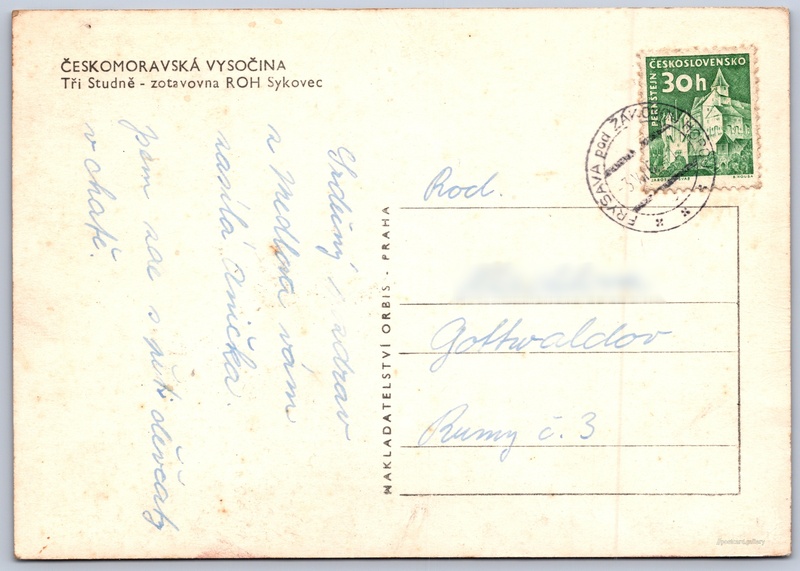 ČESKOMORAVSKÁ VYSOČINA
Tři Studně - zotavovna ROH Sykovec
Srdečný pozdrav
z Medlova vám
zasílá Anička.
jsem zde s pěti děvčaty
v chatě.
NAKLADATELSTVÍ ORBIS - PRAHA
ČESKOSLOVENSKO
30h
PERNŠTEJN
FRYŠAVA pod ŽÁKOVOU HOROU
Rod.
Gottwaldov
Rumy č. 3